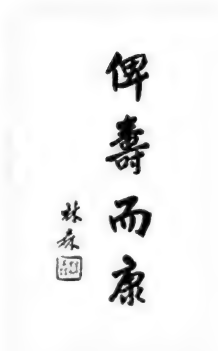 俾壽而康
林森